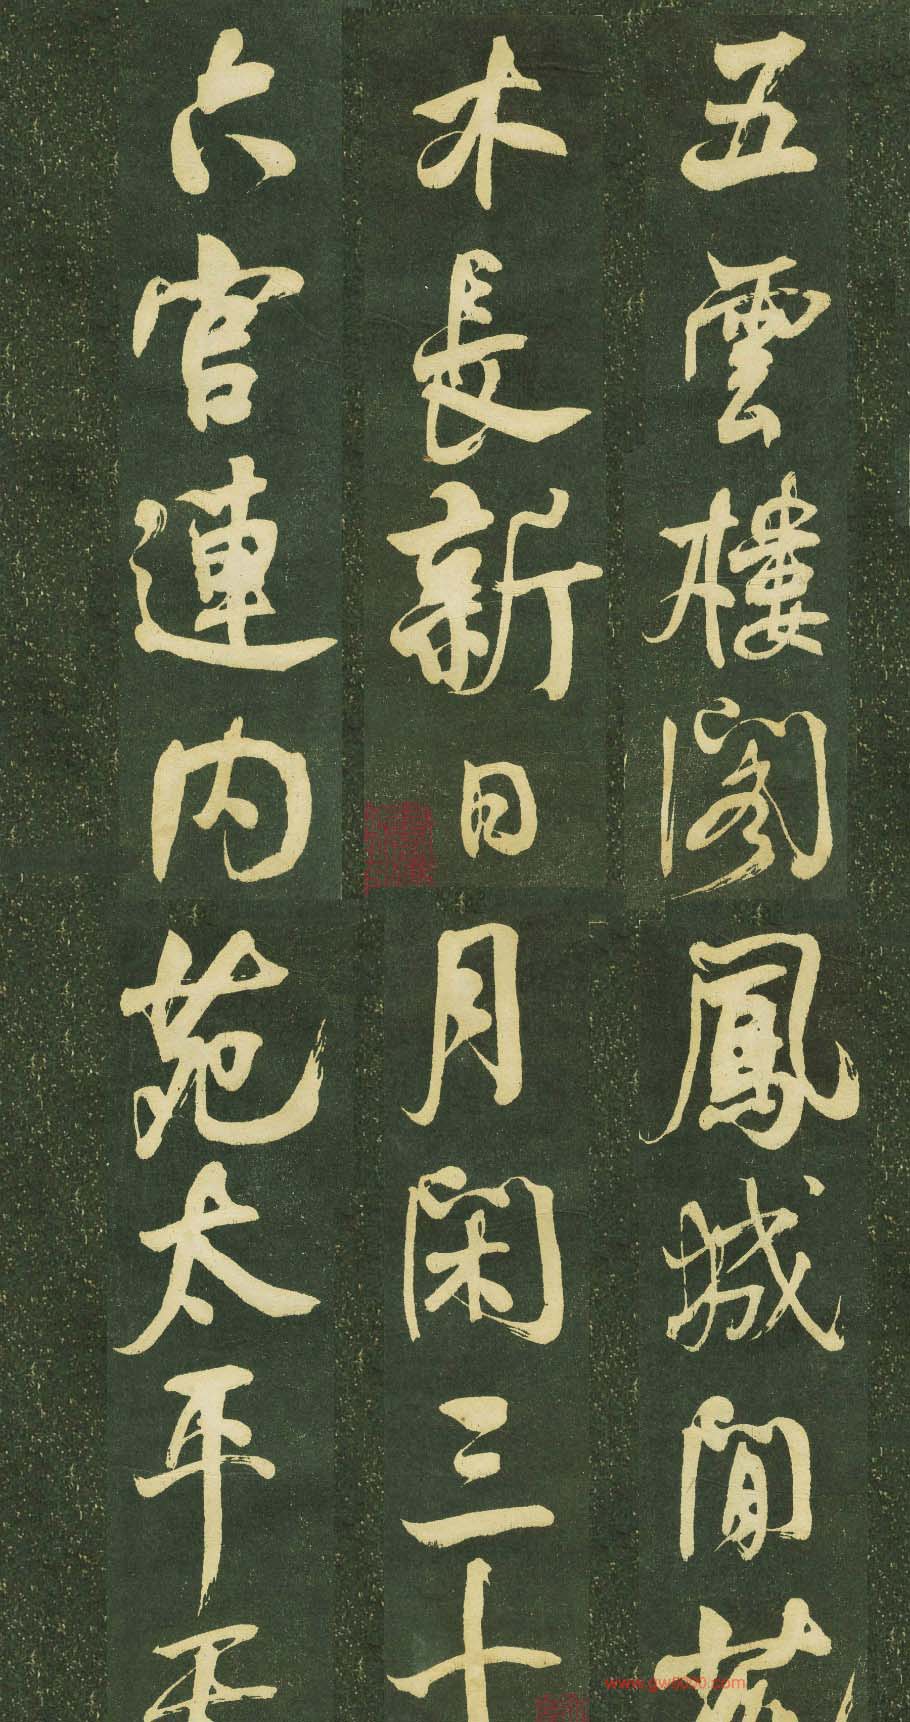 五雲樓閣鳳城間花
木長新日月閑三十
六宮連內苑太平天